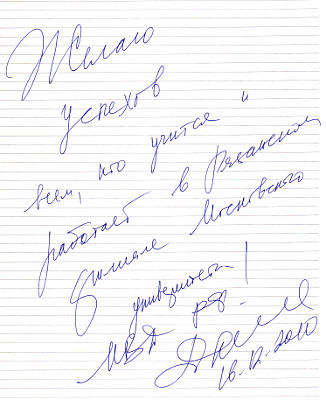 Желаю
успехов
всем, кто учится и
работает в Рязанском
филиале Московского
университета
МВД РФ.
16.12.2010